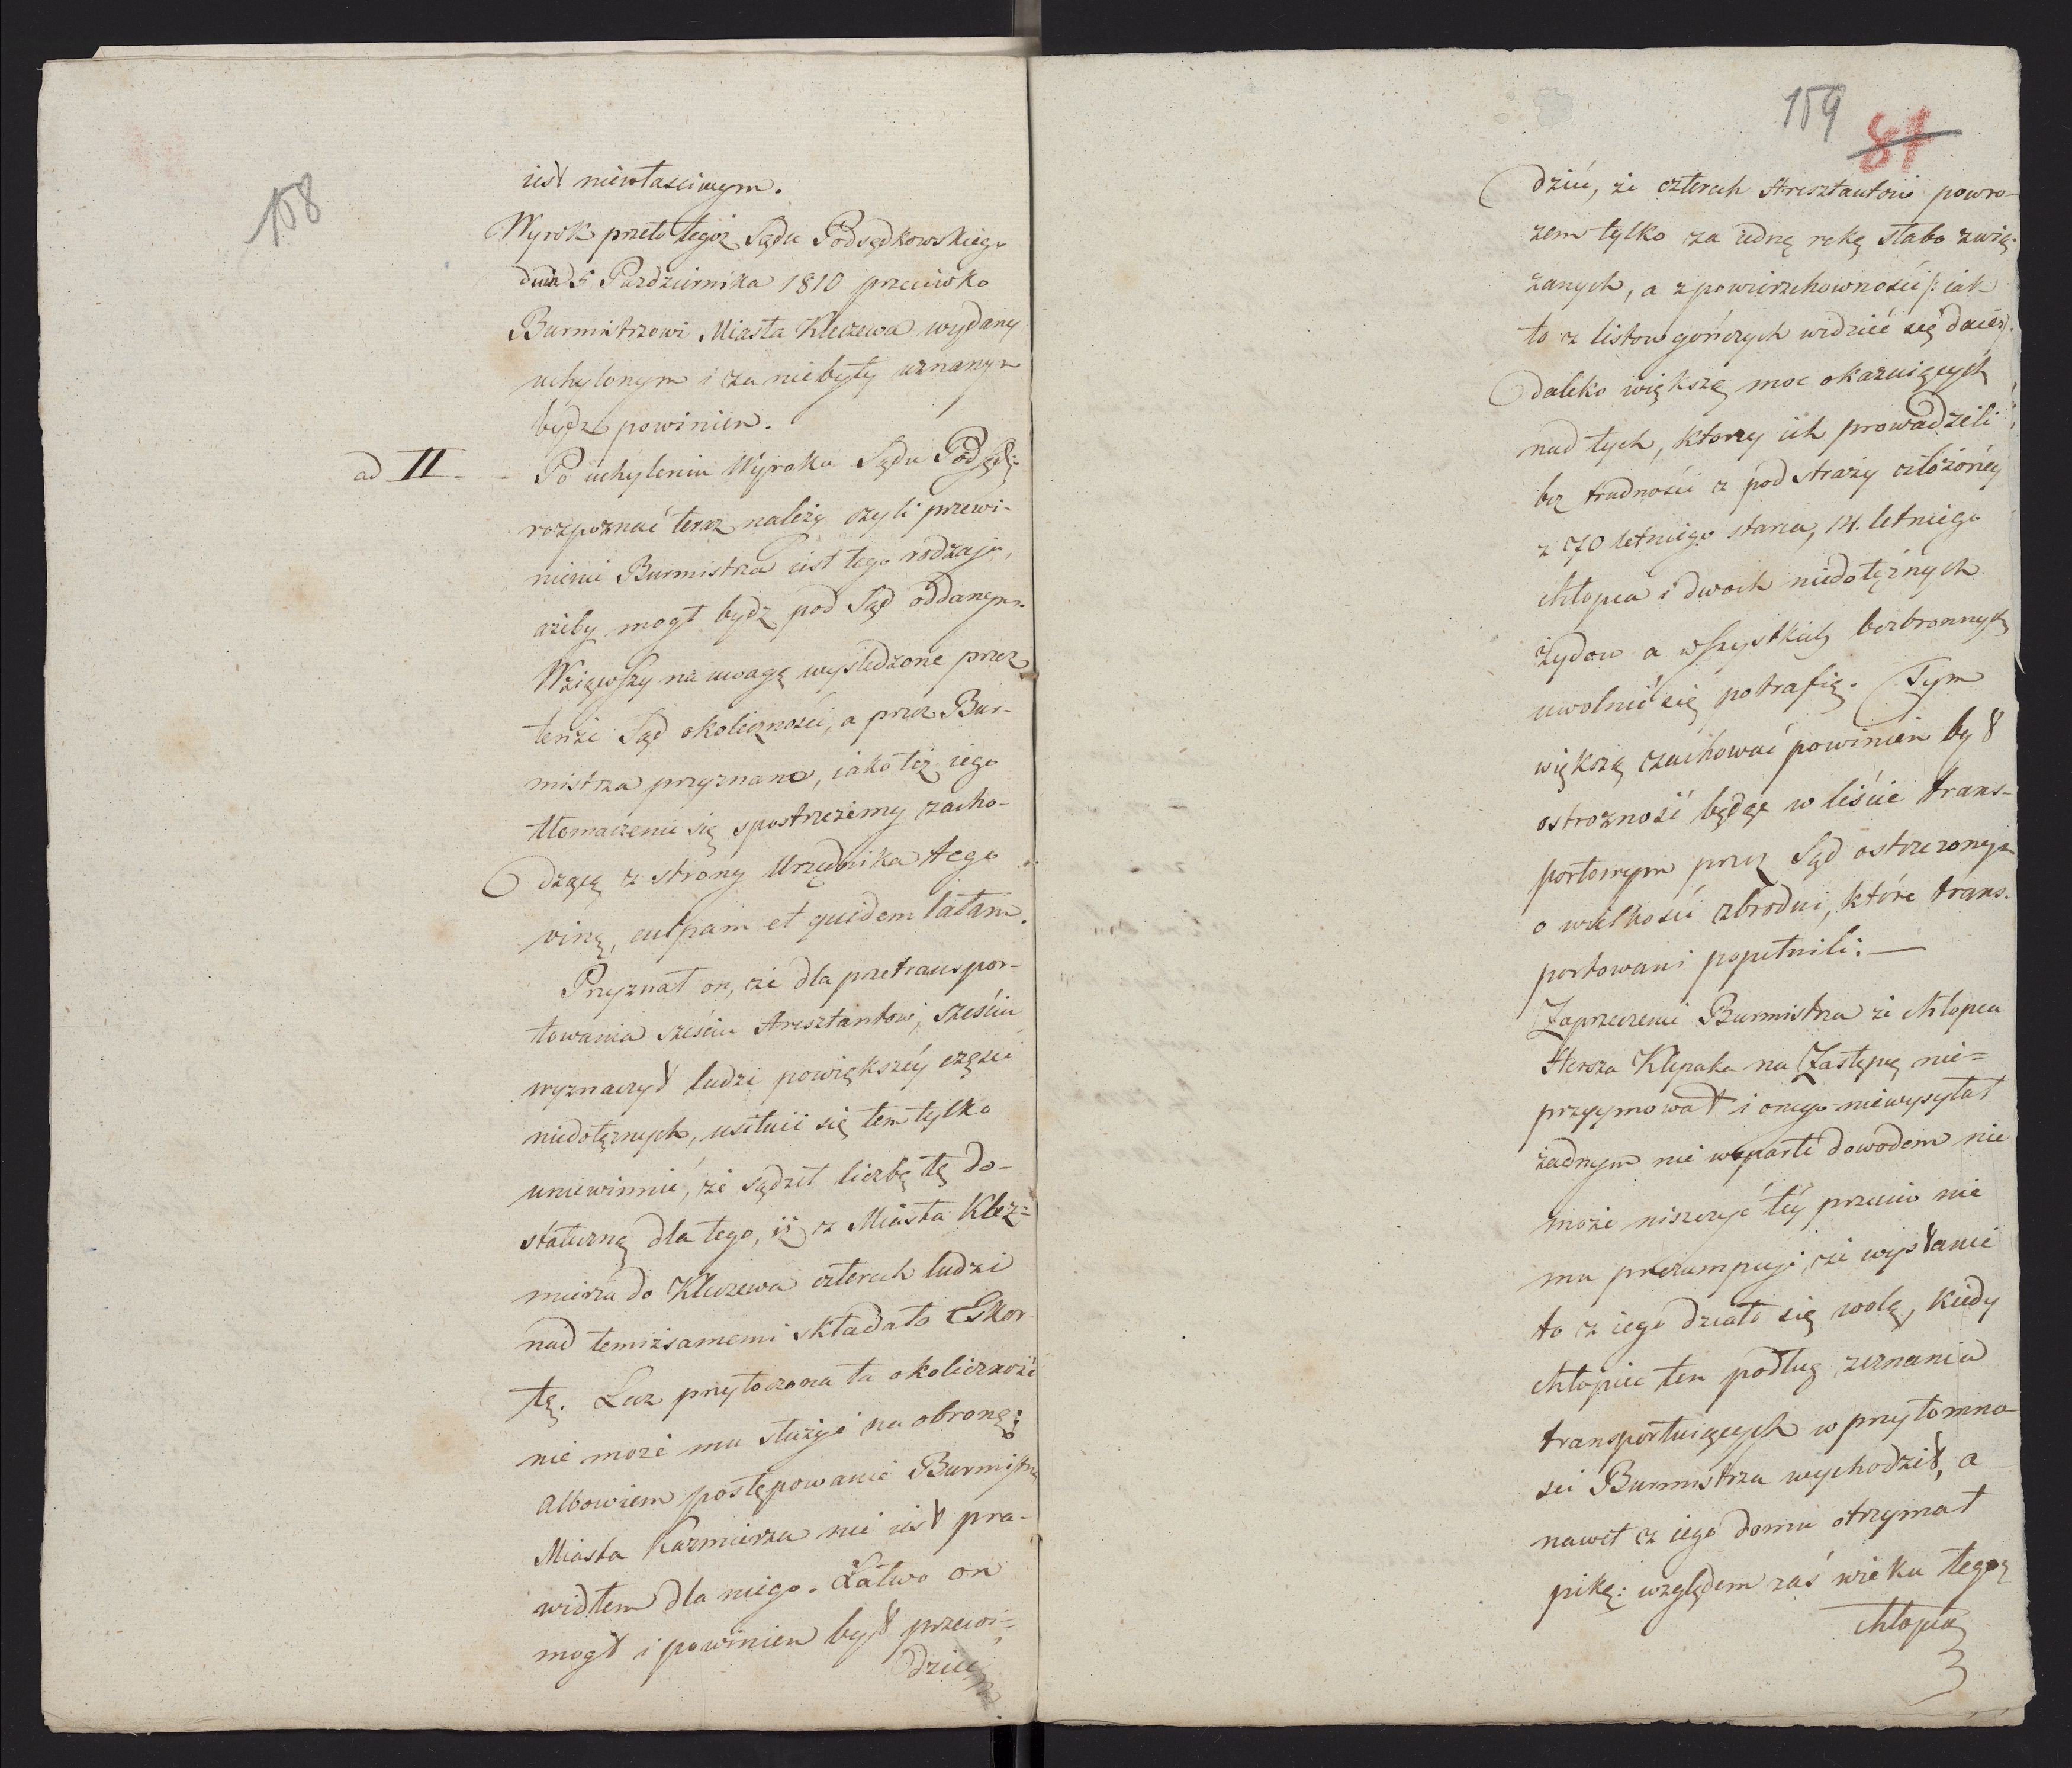 108
iest niewłasciwym.
Wyrok przeto tegoż Sądu Podsędkowskiego
dnia 5 Pazdziernika 1810 przeciwko
Burmistrzowi Miasta Kleczewa wydany
uchylonym i za niebyły uznanym
bydz powinien.
ad II. - Po uchyleniu Wyroku Sądu Podsęd:
rozpoznać teraz należy czyli przewi-
nienie Burmistrza iest tego rodzaju,
ażeby mogł bydz pod Sąd oddanym.
Wziąwszy na uwagę wysledzone przez
tenże Sąd okoliczności, a przez Bur-
mistrza przyznane, iako też iego
tłomaczenie się spostrzeżemy zacho-
dzącą z strony Urzędnika tego
winę, culpam et quidem latam.
Przyznał on, że dla przetranspor-
towania sześciu Aresztantow, sześciu
wyznaczył ludzi powiększéy części
niedołężnych, usiłuie się tem tylko
uniewinnić, że sądził liczbę tę do-
stateczną dla tego, iż z Miasta Kaź=
mierza do Kleczewa czterech ludzi
nad temiżsamemi składało Eskor
tę. Lecz przytoczona ta okoliczność
nie może mu służyć na obronę;
albowiem postępowanie Burmistrza
Miasta Kazmierza nie iest pra-
widłem dla niego. Łatwo on
mogł i powinien był przewi=
dzieć
109
87
dzieć, że czterech Aresztantow powro-
zem tylko za iedną rękę słabo zwią-
zanych, a z powierzchowności /: iak
to z listow gończych widzieć się daie :/
daleko większą moc okazuiących
nad tych, ktorzy ich prowadzili
bez trudności z pod straży złożonéy
z 70 letniego starca, 14. letniego
chłopca i dwoch niedołężnych
żydow a wszystkich bezbronnych
uwolnić się potrafią. Tym
większą zachować powinien był
ostrożność będąc w liście trans-
portowym przez Sąd ostrzeżonym
o wielkości zbrodni, które trans-
portowani popełnili. —
Zaprzeczenie Burmistrza że chłopca
Hersza Klepaka na Zastępcę nie=
przyymował i onego niewysyłał
żadnym nie wsparte dowodem nie
może niszczyć téy przeciw nie
mu prezumpcyi, że wysłanie
to z iego działo się wolą, kiedy
chłopiec ten podług zeznania
transportuiących w przytomno-
sci Burmistrza wychodził, a
nawet z iego domu otrzymał
pikę: względem zaś wieku tegoż
chłopca